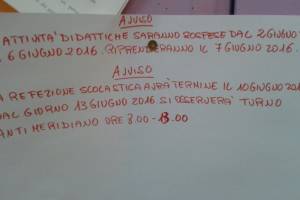 AVVISO
ATTIVITA' DIDATTICHE SARANNO SOSPESE DAL 2 GIUGNO
6 GIUGNO 2016. RIPRENDERANNO IL 7 GIUGNO 2016.
AVVISO
A REFEZIONE SCOLASTICA AVRA' TERMINE IL 10 GIUGNO 201
DAL GIORNO 13 GIUGNO 2016 SI OSSERVERA' TURNO
ANTIMERIDIANO ORE 8.00 - 13.00